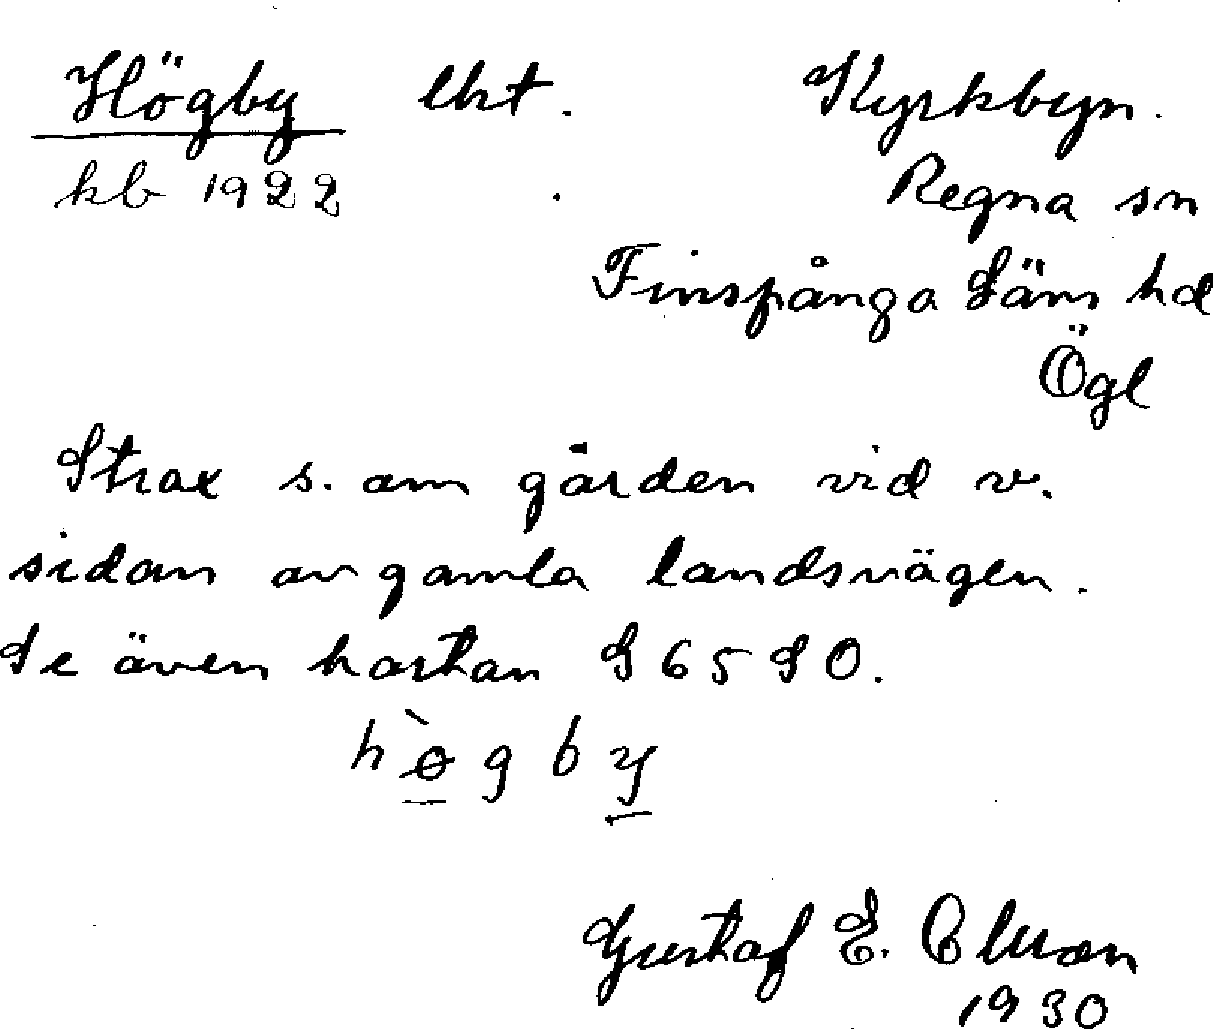 Högby lht. Kyrkbyn.
kb 1922 Regna sn
Finspånga läns hd
Ögl
Strax s. om gården vid v.
sidan av gamla landsvägen.
Se även kartan S 65 S O.
hø̀gby
Gustaf E.
1930